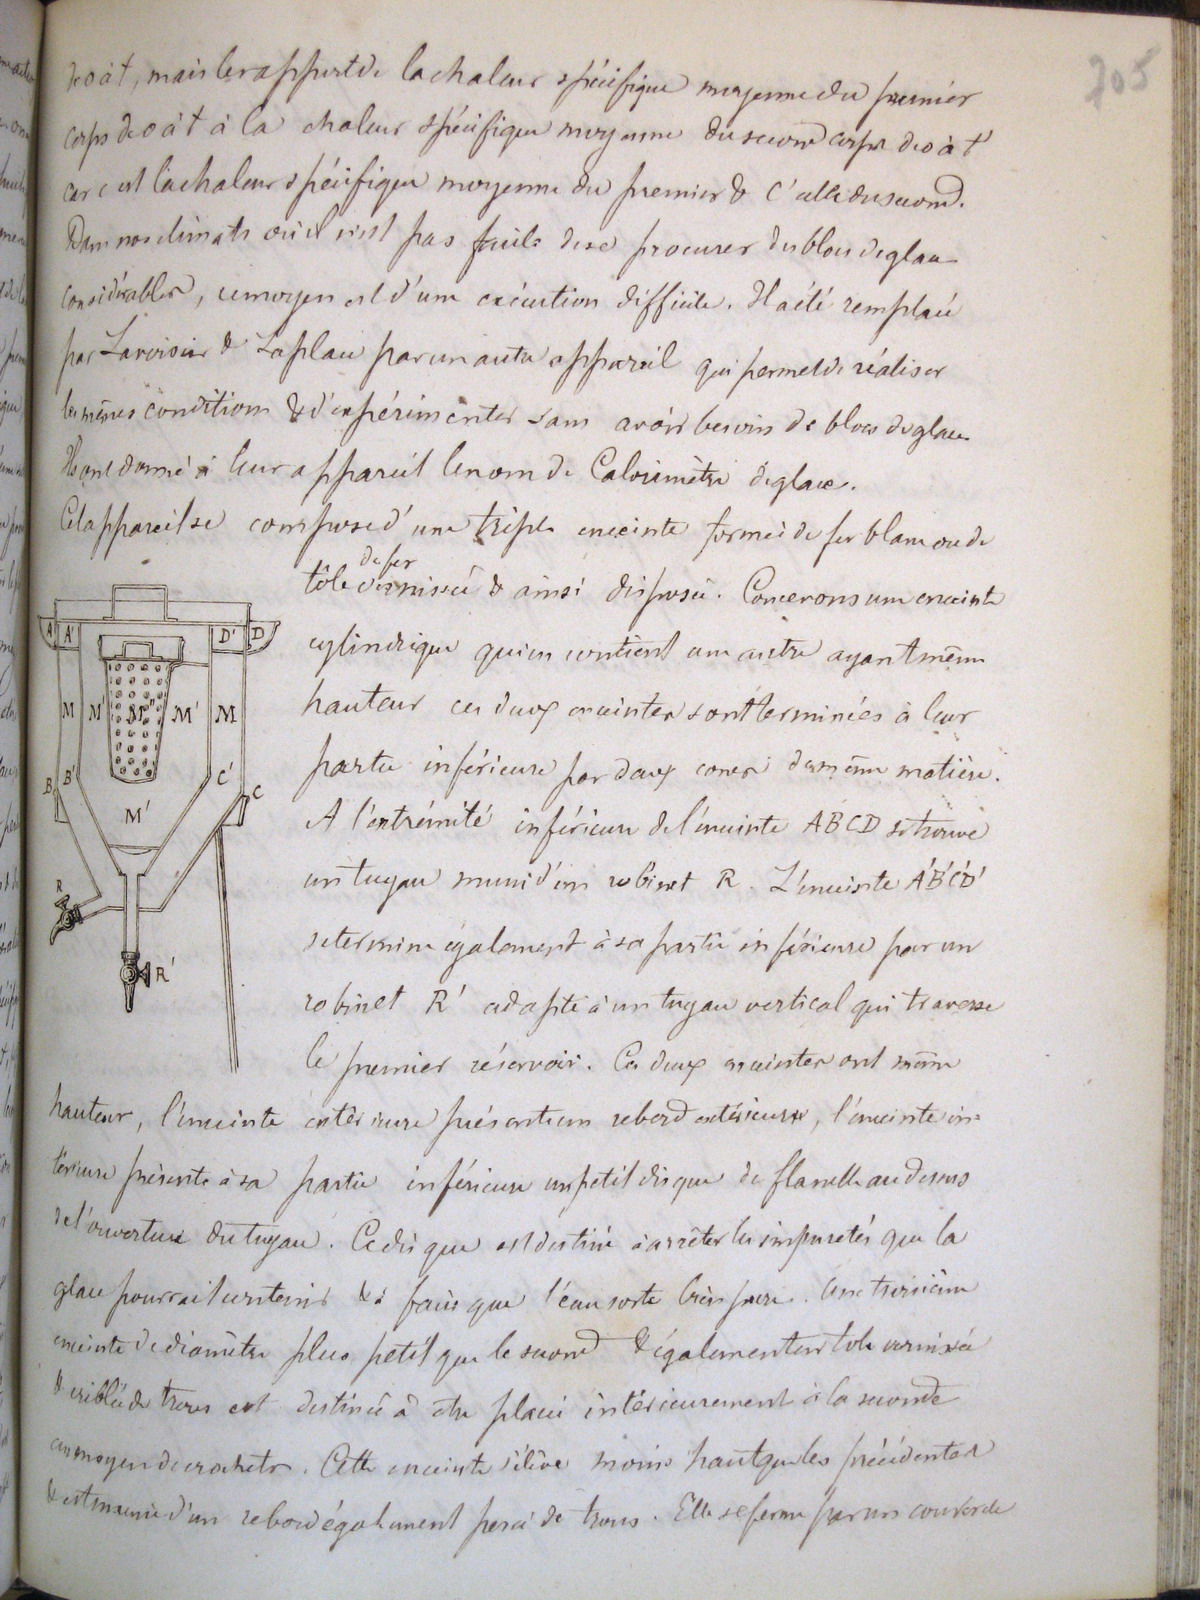 705
de 0 à t, mais le rapport de la chaleur spécifique moyenne du premier
corps de 0 à t à la chaleur spécifique moyenne du second corps de 0 à t'
car c est la chaleur spécifique moyenne du premier & c' celle du second.
Dans nos climats où il n'est pas facile de se procurer des blocs de glace
considérables, ce moyen est d'une exécution difficile. Il a été remplacé
par Lavoisier & Laplace par un autre appareil qui permet de réaliser
les mêmes conditions & d'expérimenter sans avoir besoin de blocs de glace
Ils ont donné à leur appareil le nom de Calorimètre de glace.
Cet appareil se compose d'une triple enceinte formée de fer blanc ou de
de fer
tôle vernissée & ainsi disposée. Concevons une enceinte
cylindrique qui en contient une autre ayant même
hauteur ces deux enceintes sont terminées à leur
partie inférieure par deux cones de même matière.
A l'extrémité inférieure de l'enceinte ABCD se trouve
un tuyau muni d'un robinet R. L'enceinte A'B'C'D'
se termine également à sa partie inférieure par un
robinet R' adapté à un tuyau vertical qui traverse
le premier réservoir. Ces deux enceintes ont même
hauteur, l'enceinte extérieure présente un rebord extérieur, l'enceinte in-
térieure présente à sa partie inférieure un petit disque de flanelle au dessus
de l'ouverture du tuyau. Ce disque est destiné à arrêter les impuretés que la
glace pourrait contenir & à faire que l'eau sorte bien pure. Une troisième
enceinte de diamètre plus petit que le second & également en tole vernissée
& criblée de trous est destinée à être placée intérieurement à la seconde
au moyen de crochets. Cette enceinte s'élève moins haut que les précédentes
& est munie d'un rebord également percé de trous. Elle se ferme par un couvercle
A A' D' D
M M' M" M' M
B B' C' C
M'
R
R'